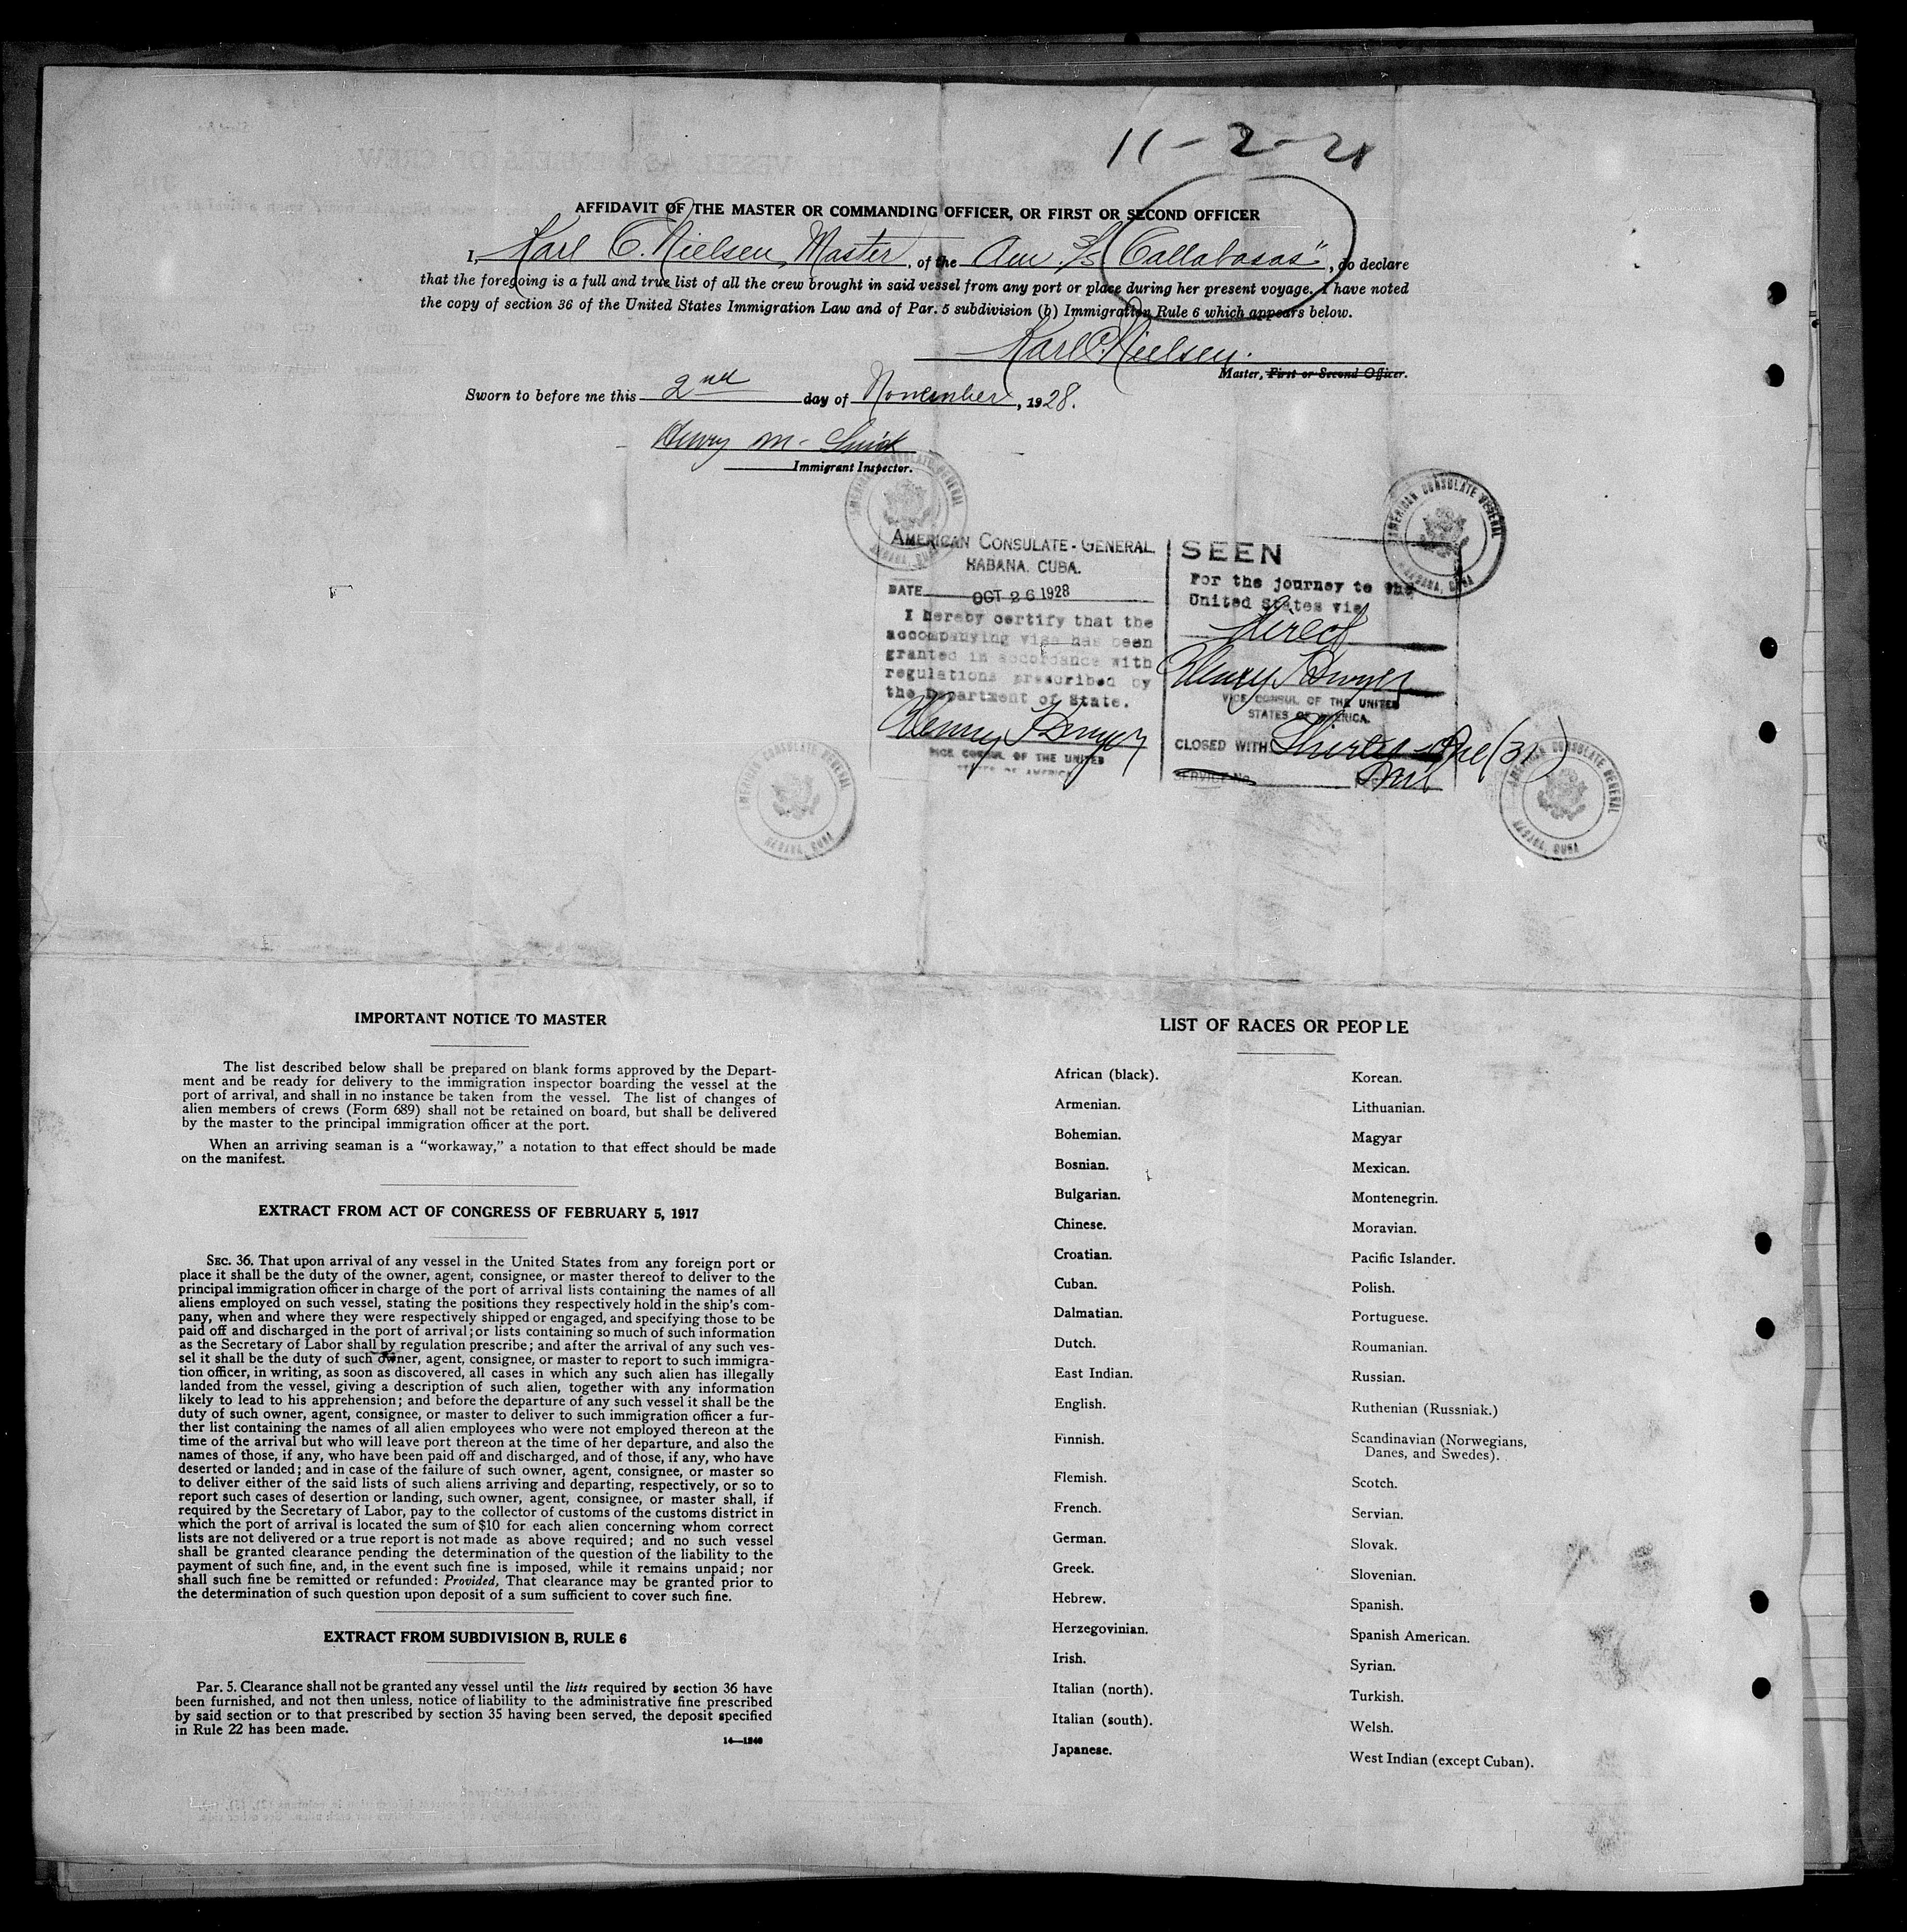 11-2-28
AFFIDAVIT OF THE MASTER OR COMMANDING OFFICER, OR FIRST OR SECOND OFFICER
I, Karl C. Nielsen, Master, of the Am. S/S "Callabasas", do declare
that the foregoing is a full and true list of all the crew brought in said vessel from any port or place during her present voyage. I have noted
the copy of section 36 of the United States Immigration Law and of Par. 5 subdivision (b) Immigration Rule 6 which appears below.
Karl C. Nielsen.
Master, First or Second Officer.
Sworn to before me this 2nd day of November, 1928.
Henry M.
Immigrant Inspector.
AMERICAN CONSULATE GENERAL
HABANA, CUBA
AMERICAN CONSULATE GENERAL
HABANA, CUBA
AMERICAN CONSULATE-GENERAL
HABANA, CUBA.
DATE OCT 26 1928
I hereby certify that the
accompanying visa has been
granted in accordance with
regulations prescribed by
the Department of State.
Henry
VICE CONSUL OF THE UNITED
STATES OF AMERICA
SEEN
For the journey to the
United States via
direct
Henry
VICE CONSUL OF THE UNITED
STATES OF AMERICA.
CLOSED WITH Thirty-One (31)
SERVICE No.
AMERICAN CONSULATE GENERAL
HABANA, CUBA
AMERICAN CONSULATE GENERAL
HABANA, CUBA
IMPORTANT NOTICE TO MASTER
The list described below shall be prepared on blank forms approved by the Depart-
ment and be ready for delivery to the immigration inspector boarding the vessel at the
port of arrival, and shall in no instance be taken from the vessel. The list of changes of
alien members of crews (Form 689) shall not be retained on board, but shall be delivered
by the master to the principal immigration officer at the port.
When an arriving seaman is a "workaway," a notation to that effect should be made
on the manifest.
EXTRACT FROM ACT OF CONGRESS OF FEBRUARY 5, 1917
SEC. 36. That upon arrival of any vessel in the United States from any foreign port or
place it shall be the duty of the owner, agent, consignee, or master thereof to deliver to the
principal immigration officer in charge of the port of arrival lists containing the names of all
aliens employed on such vessel, stating the positions they respectively hold in the ship's com-
pany, when and where they were respectively shipped or engaged, and specifying those to be
paid off and discharged in the port of arrival; or lists containing so much of such information
as the Secretary of Labor shall by regulation prescribe; and after the arrival of any such ves-
sel it shall be the duty of such owner, agent, consignee, or master to report to such immigra-
tion officer, in writing, as soon as discovered, all cases in which any such alien has illegally
landed from the vessel, giving a description of such alien, together with any information
likely to lead to his apprehension; and before the departure of any such vessel it shall be the
duty of such owner, agent, consignee, or master to deliver to such immigration officer a fur-
ther list containing the names of all alien employees who were not employed thereon at the
time of the arrival but who will leave port thereon at the time of her departure, and also the
names of those, if any, who have been paid off and discharged, and of those, if any, who have
deserted or landed; and in case of the failure of such owner, agent, consignee, or master so
to deliver either of the said lists of such aliens arriving and departing, respectively, or so to
report such cases of desertion or landing, such owner, agent, consignee, or master shall, if
required by the Secretary of Labor, pay to the collector of customs of the customs district in
which the port of arrival is located the sum of $10 for each alien concerning whom correct
lists are not delivered or a true report is not made as above required; and no such vessel
shall be granted clearance pending the determination of the question of the liability to the
payment of such fine, and, in the event such fine is imposed, while it remains unpaid; nor
shall such fine be remitted or refunded: Provided, That clearance may be granted prior to
the determination of such question upon deposit of a sum sufficient to cover such fine.
EXTRACT FROM SUBDIVISION B, RULE 6
Par. 5. Clearance shall not be granted any vessel until the lists required by section 36 have
been furnished, and not then unless, notice of liability to the administrative fine prescribed
by said section or to that prescribed by section 35 having been served, the deposit specified
in Rule 22 has been made.
14—1240
LIST OF RACES OR PEOPLE
African (black).
Armenian.
Bohemian.
Bosnian.
Bulgarian.
Chinese.
Croatian.
Cuban.
Dalmatian.
Dutch.
East Indian.
English.
Finnish.
Flemish.
French.
German.
Greek.
Hebrew.
Herzegovinian.
Irish.
Italian (north).
Italian (south).
Japanese.
Korean.
Lithuanian.
Magyar
Mexican.
Montenegrin.
Moravian.
Pacific Islander.
Polish.
Portuguese.
Roumanian.
Russian.
Ruthenian (Russniak.)
Scandinavian (Norwegians,
Danes, and Swedes).
Scotch.
Servian.
Slovak.
Slovenian.
Spanish.
Spanish American.
Syrian.
Turkish.
Welsh.
West Indian (except Cuban).